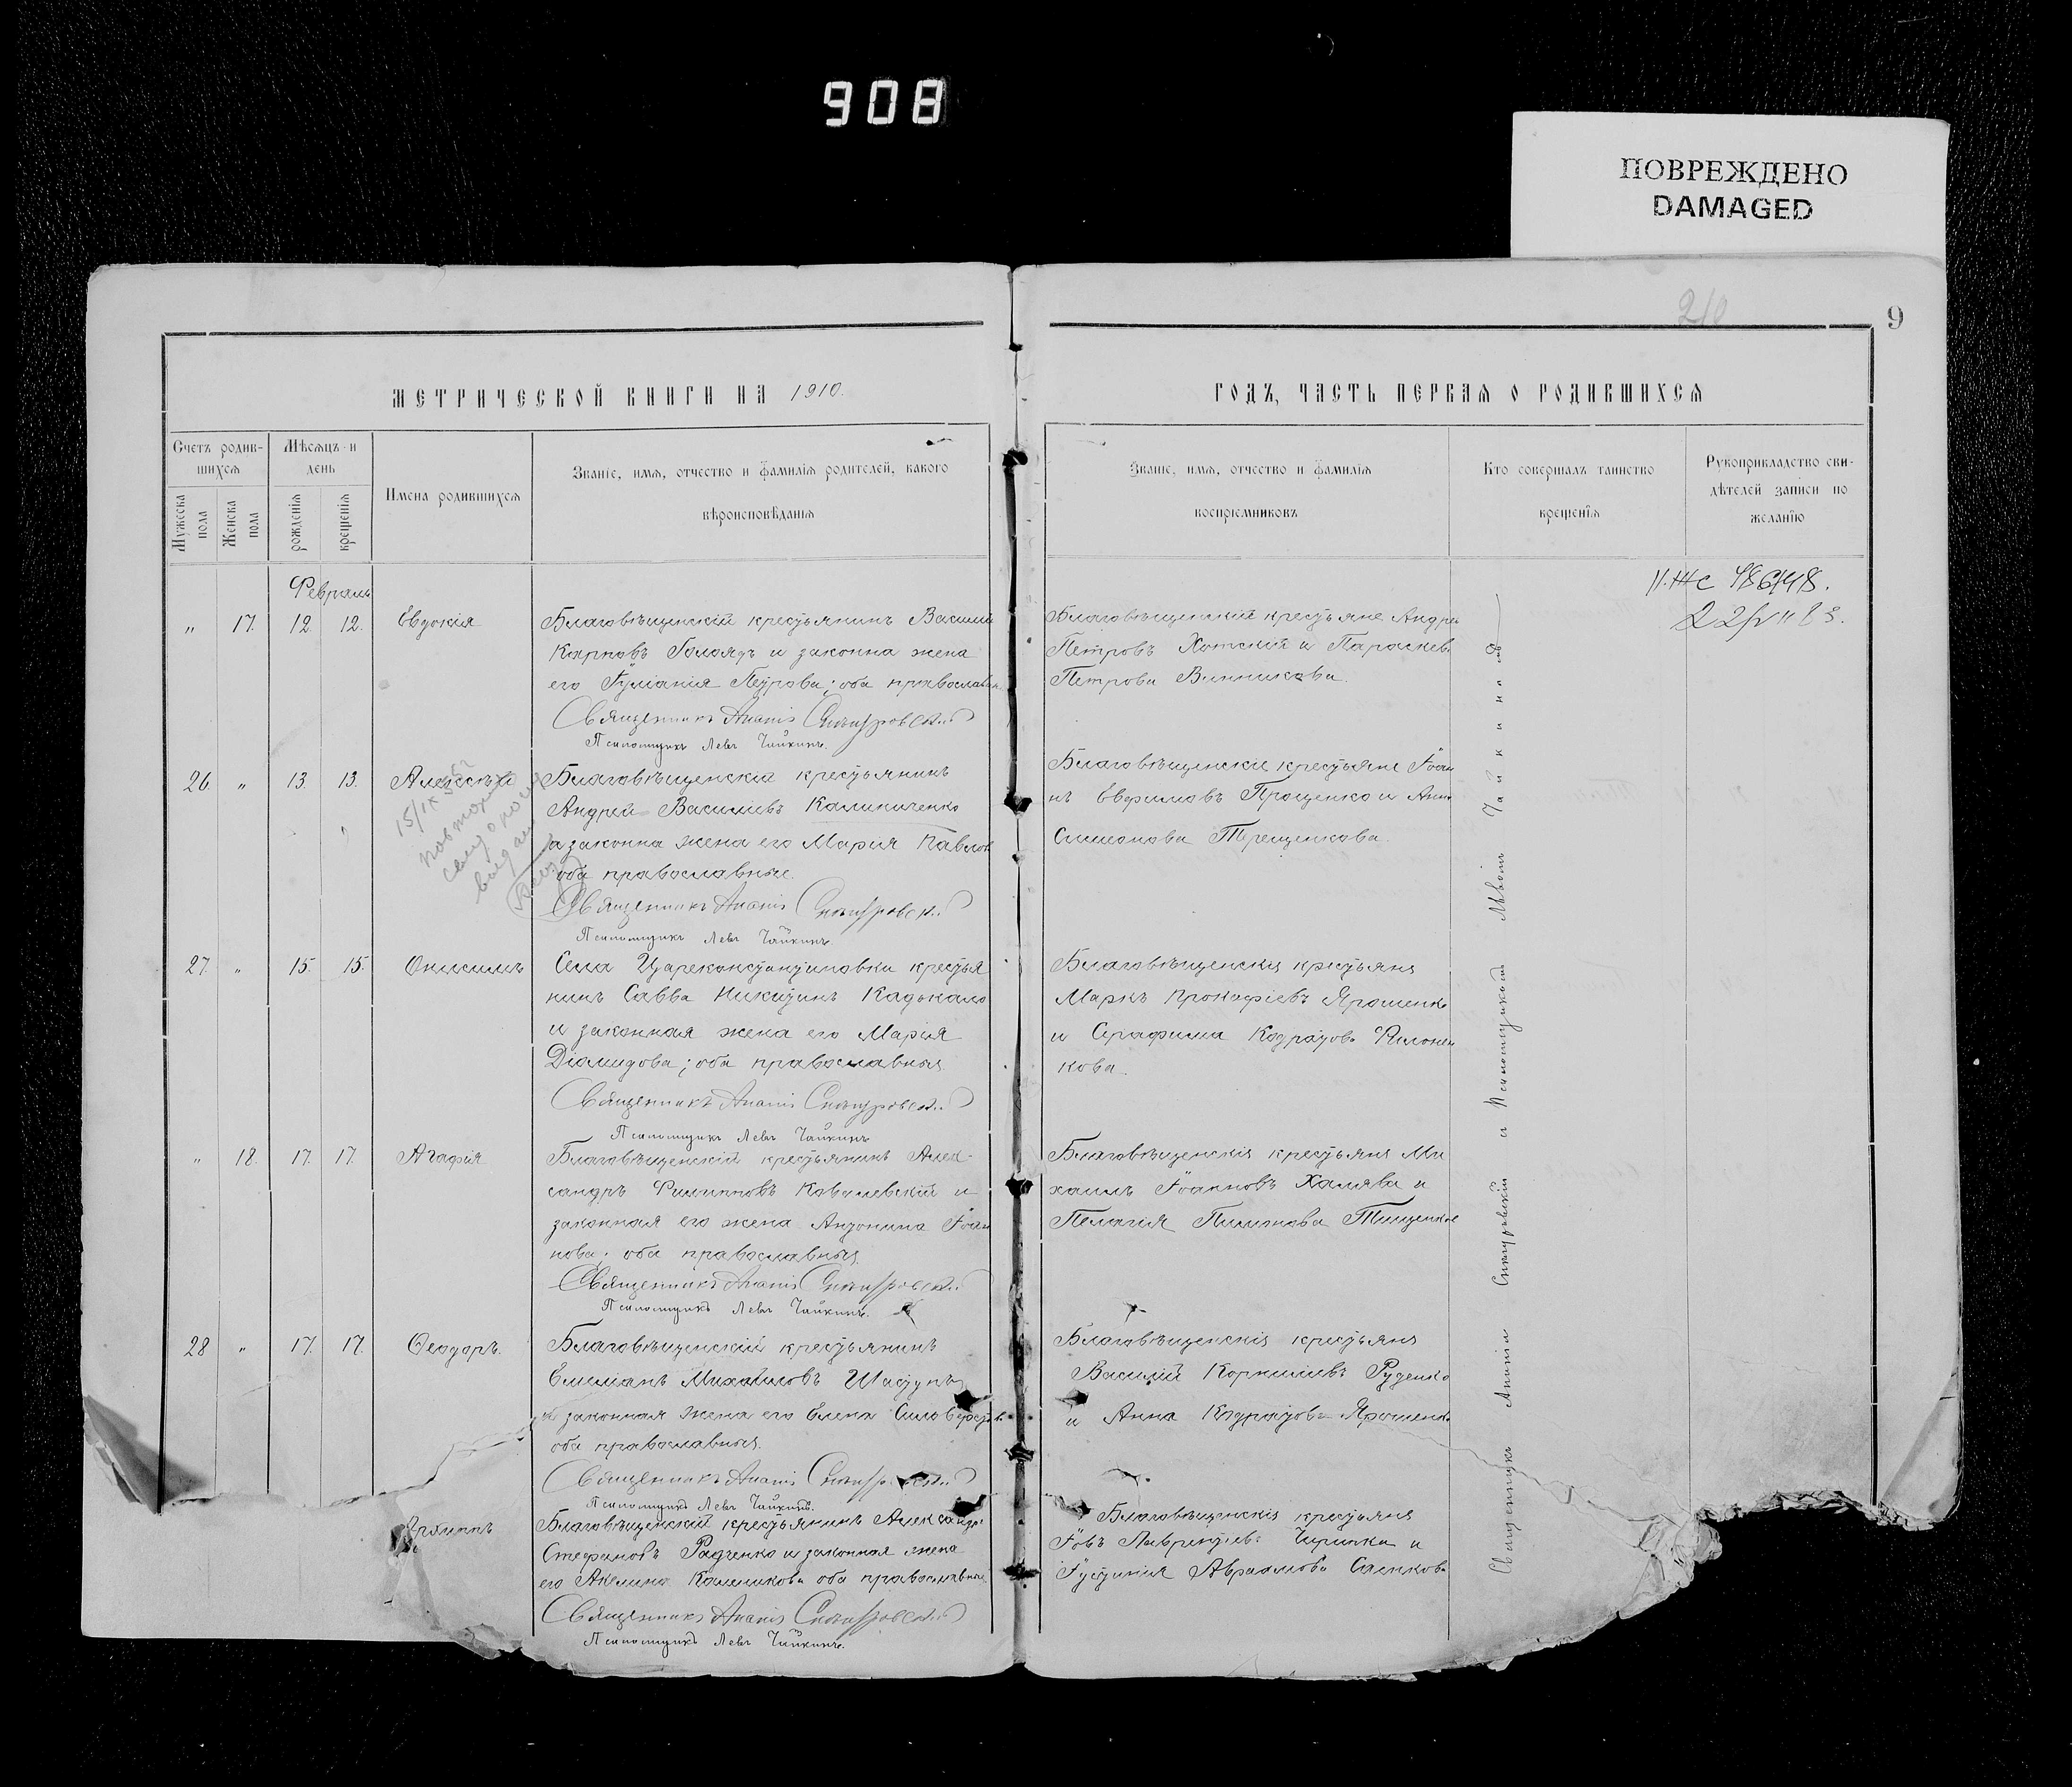 908
ПОВРЕЖДЕНО
DAMAGED
210
9
МЕТРИЧЕСКОЙ КНИГИ НА 1910.
ГОДЪ, ЧАСТЬ ПЕРВАЯ О РОДИВШИХСЯ
Счетъ родив-
шихся
Мужеска
пола
Женска
пола
Мѣсяцъ и
день
рожденія
крещенія
Имена родившихся
Званіе, имя, отчество и фамилія родителей, какого
вѣроисповѣданія
Званіе, имя, отчество и фамилія
воспріемниковъ
Кто совершалъ таинство
крещенія
Рукоприкладство сви-
дѣтелей записи по
желанію
Февраль
„ 17. 12. 12. Евдокія
Благовѣщенскій крестьянинъ Василій
Карповъ и законна жена
его Іуліанія Петрова; оба православн.
Священникъ Ананія
Псаломщикъ Левъ Чайкинъ.
Благовѣщенскій крестьяне Андрей
Петровъ Хотскій и Параскева
Петрова Винникова.
26. „ 13. 13. Алексѣй
15/IX
Благовѣщенскій крестьянинъ
Андрей Василіевъ Калиниченко
а законна жена его Марія Павлов
оба православные.
Священникъ Ананія
Псаломщикъ Левъ Чайкинъ.
Благовѣщенскіе крестьяне Іоан
нъ Евфимовъ Прощенко и Анна
Симеонова Терещенкова.
27. „ 15. 15. Онисимъ
Села Цареконстантиновки крестья
нинъ Савва Никитинъ Кадькало
и законная жена его Марія
Діомидова; оба православныя.
Священникъ Ананія
Псаломщикъ Левъ Чайкинъ
Благовѣщенскія крестьяне
Маркъ Прокофіевъ Ярошенко
и Серафима Кодратова Филонен
кова.
„ 18. 17. 17. Агафія
Благовѣщенскій крестьянинъ Алек-
сандръ Филипповъ Ковалевскій и
законная его жена Антонина Іоан
нова; оба православныя.
Священникъ Ананія
Псаломщикъ Левъ Чайкинъ.
Благовѣщенскія крестьяне Ми
хаилъ Іоанновъ Халява и
Пелагія Пименова Тищенкова
28 „ 17. 17. Ѳеодоръ.
Благовѣщенскій крестьянинъ
Емеліанъ Михайловъ Шастунъ
и законная жена его Елена Силовестр
оба православныя.
Священникъ Ананія
Псаломщикъ Левъ Чайкинъ.
Благовѣщенскія крестьяне
Василій Корниліевъ Руденко
и Анна Кодратова Ярошенко
Архиппъ
Благовѣщенскій крестьянинъ Александръ
Стефановъ Радченко и законная жена
его Акелина Калиникова оба православные
Священникъ Ананія
Псаломщикъ Левъ Чайкинъ.
Благовѣщенскія крестьяне
Іовъ Лаврентіевъ и
Іустинія Авраамова
Священникъ Ананія и Псаломщикомъ Львомъ Чайкинымъ